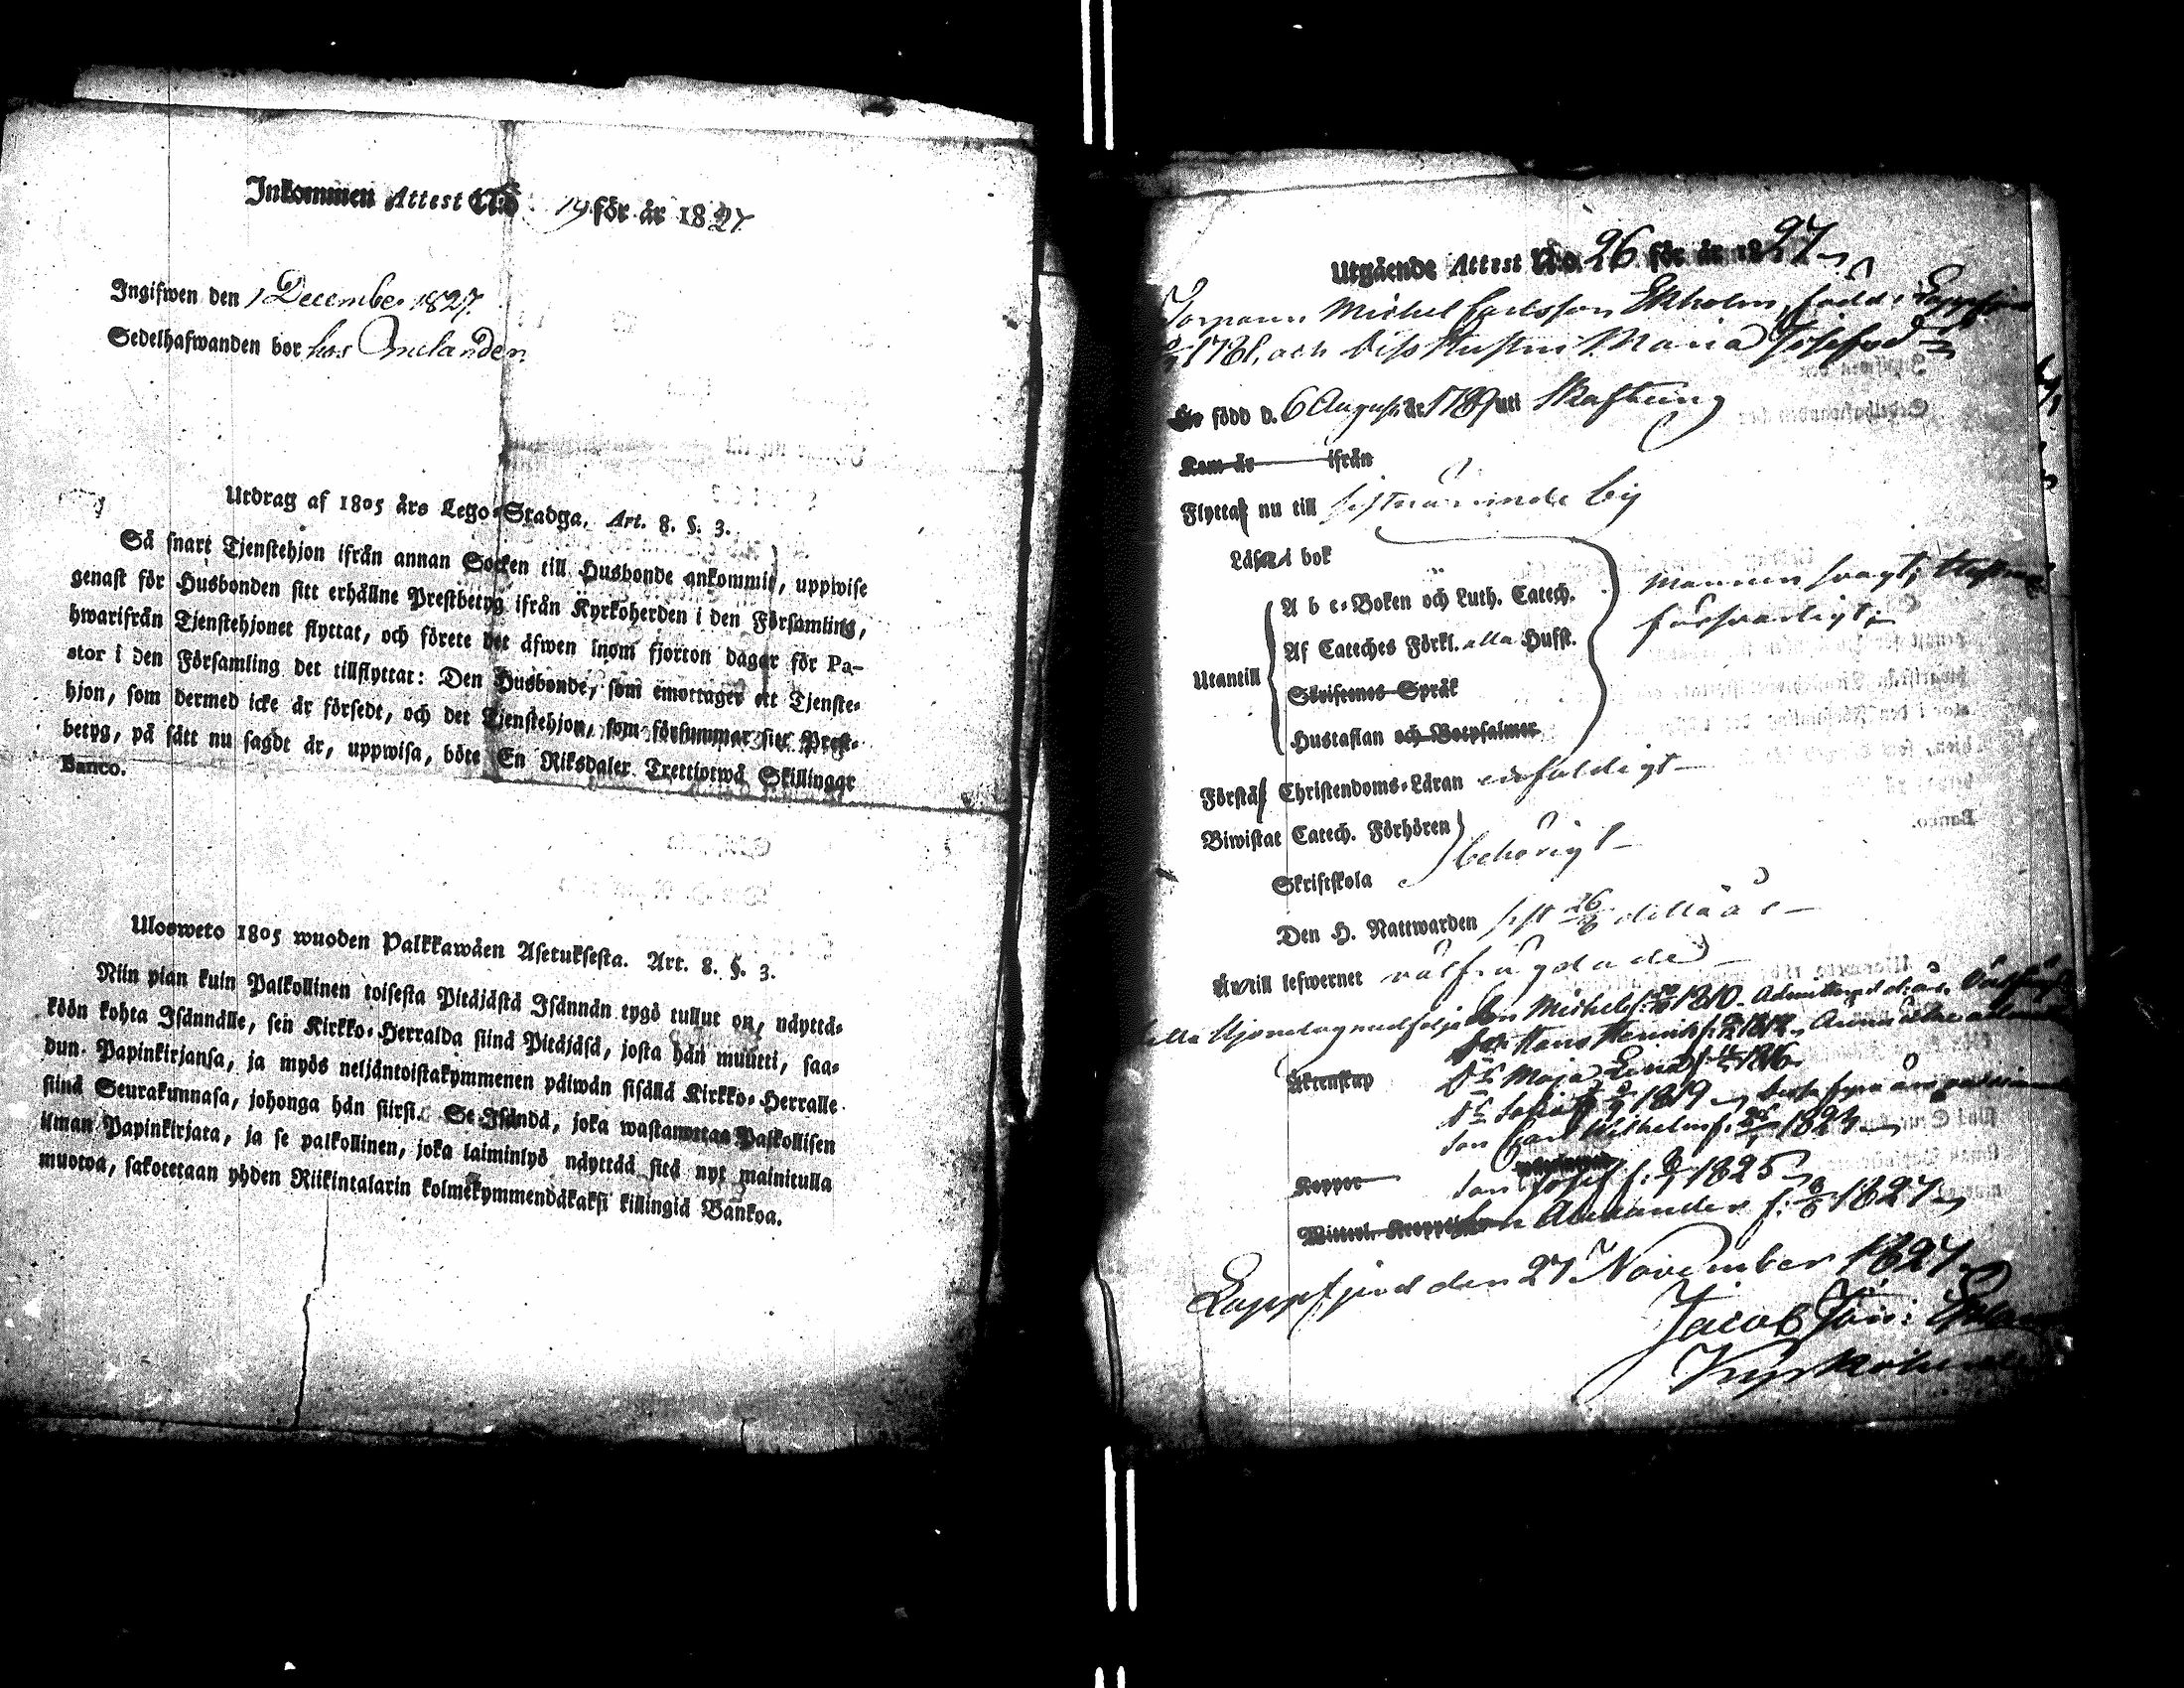 Inkommen Attest No 19 för år 1827.
Ingifwen den 1 December 1827.
Sedelhafwanden bor hos Melander.
Utdrag af 1805 års Lego-Stadga, Art. 8. §. 3.
Så snart Tjenstehjon ifrån annan Socken till Husbonde ankommit, uppwise
genast för Husbonden sitt erhållne Prestbetyg ifrån Kyrkoherden i den Församling,
hwarifrån Tjenstehjonet flyttat, och förete det äfwen inom fjorton dagar för Pa-
stor i den Församling det tillflyttat: Den Husbonde, som emottager ett Tjenste-
hjon, som dermed icke är försedt, och det Tjenstehjon, som försummar sitt Prest-
betyg, på sätt nu sagdt är, uppwisa, böte En Riksdaler Trettiotwå Skillingar
Banco.
Ulosweto 1805 wuoden Palkkawäen Asetuksesta. Art. 8. §. 3.
Niin pian kuin Palkollinen toisesta Pitäjästä Isännän tygö tullut on, näyttä-
köön kohta Isännälle, sen Kirkko-Herralda siinä Pitäjäsä, josta hän muutti, saa-
dun Papinkirjansa, ja myös neljäntoistakymmenen päiwän sisällä Kirkko-Herralle
siinä Seurakunnasa, johonga hän siirsi. Se Isändä, joka wastanottaa Palkollisen
ilman Papinkirjata, ja se palkollinen, joka laiminlyö näyttää sitä nyt mainitulla
muotoa, sakotetaan yhden Riikintalarin kolmekymmendäkaksi killingiä Bankoa.
Utgående Attest No. 26 för år 1827
Michel Carlsson Ekholm, född i
1781, och dess Hustru Maria
Är född d. 6 August. år 1789 uti Skaftung
Kom år ifrån
Flyttar nu till sistnämnde by
Läser i bok
A b c-Boken och Luth. Catech. mannen svagt; Hustrun
Af Cateches Förkl. Hufst. försvarligt;
Utantill
Skriftenes Språk
Hustaflan och Botpsalmer
Förstår Christendoms-Läran enfaldigt
Biwistat Catech. Förhören
behörigt
Skriftskola
Den H. Nattwarden sist 26/8 detta år
Är till lefwernet välfrägdade
Son Michel f. 1810.
Son Hans Henrik f.
Äktenskap Dr Maja Lena f. 1816
Dr 1819
Son Carl Wilhelm f. 1824
Koppor Son Josef f. 1825
Witterl. Son Alexander f. 1827
Lappfjärd den 27 November 1827.
Jacob
Kyrkoherde